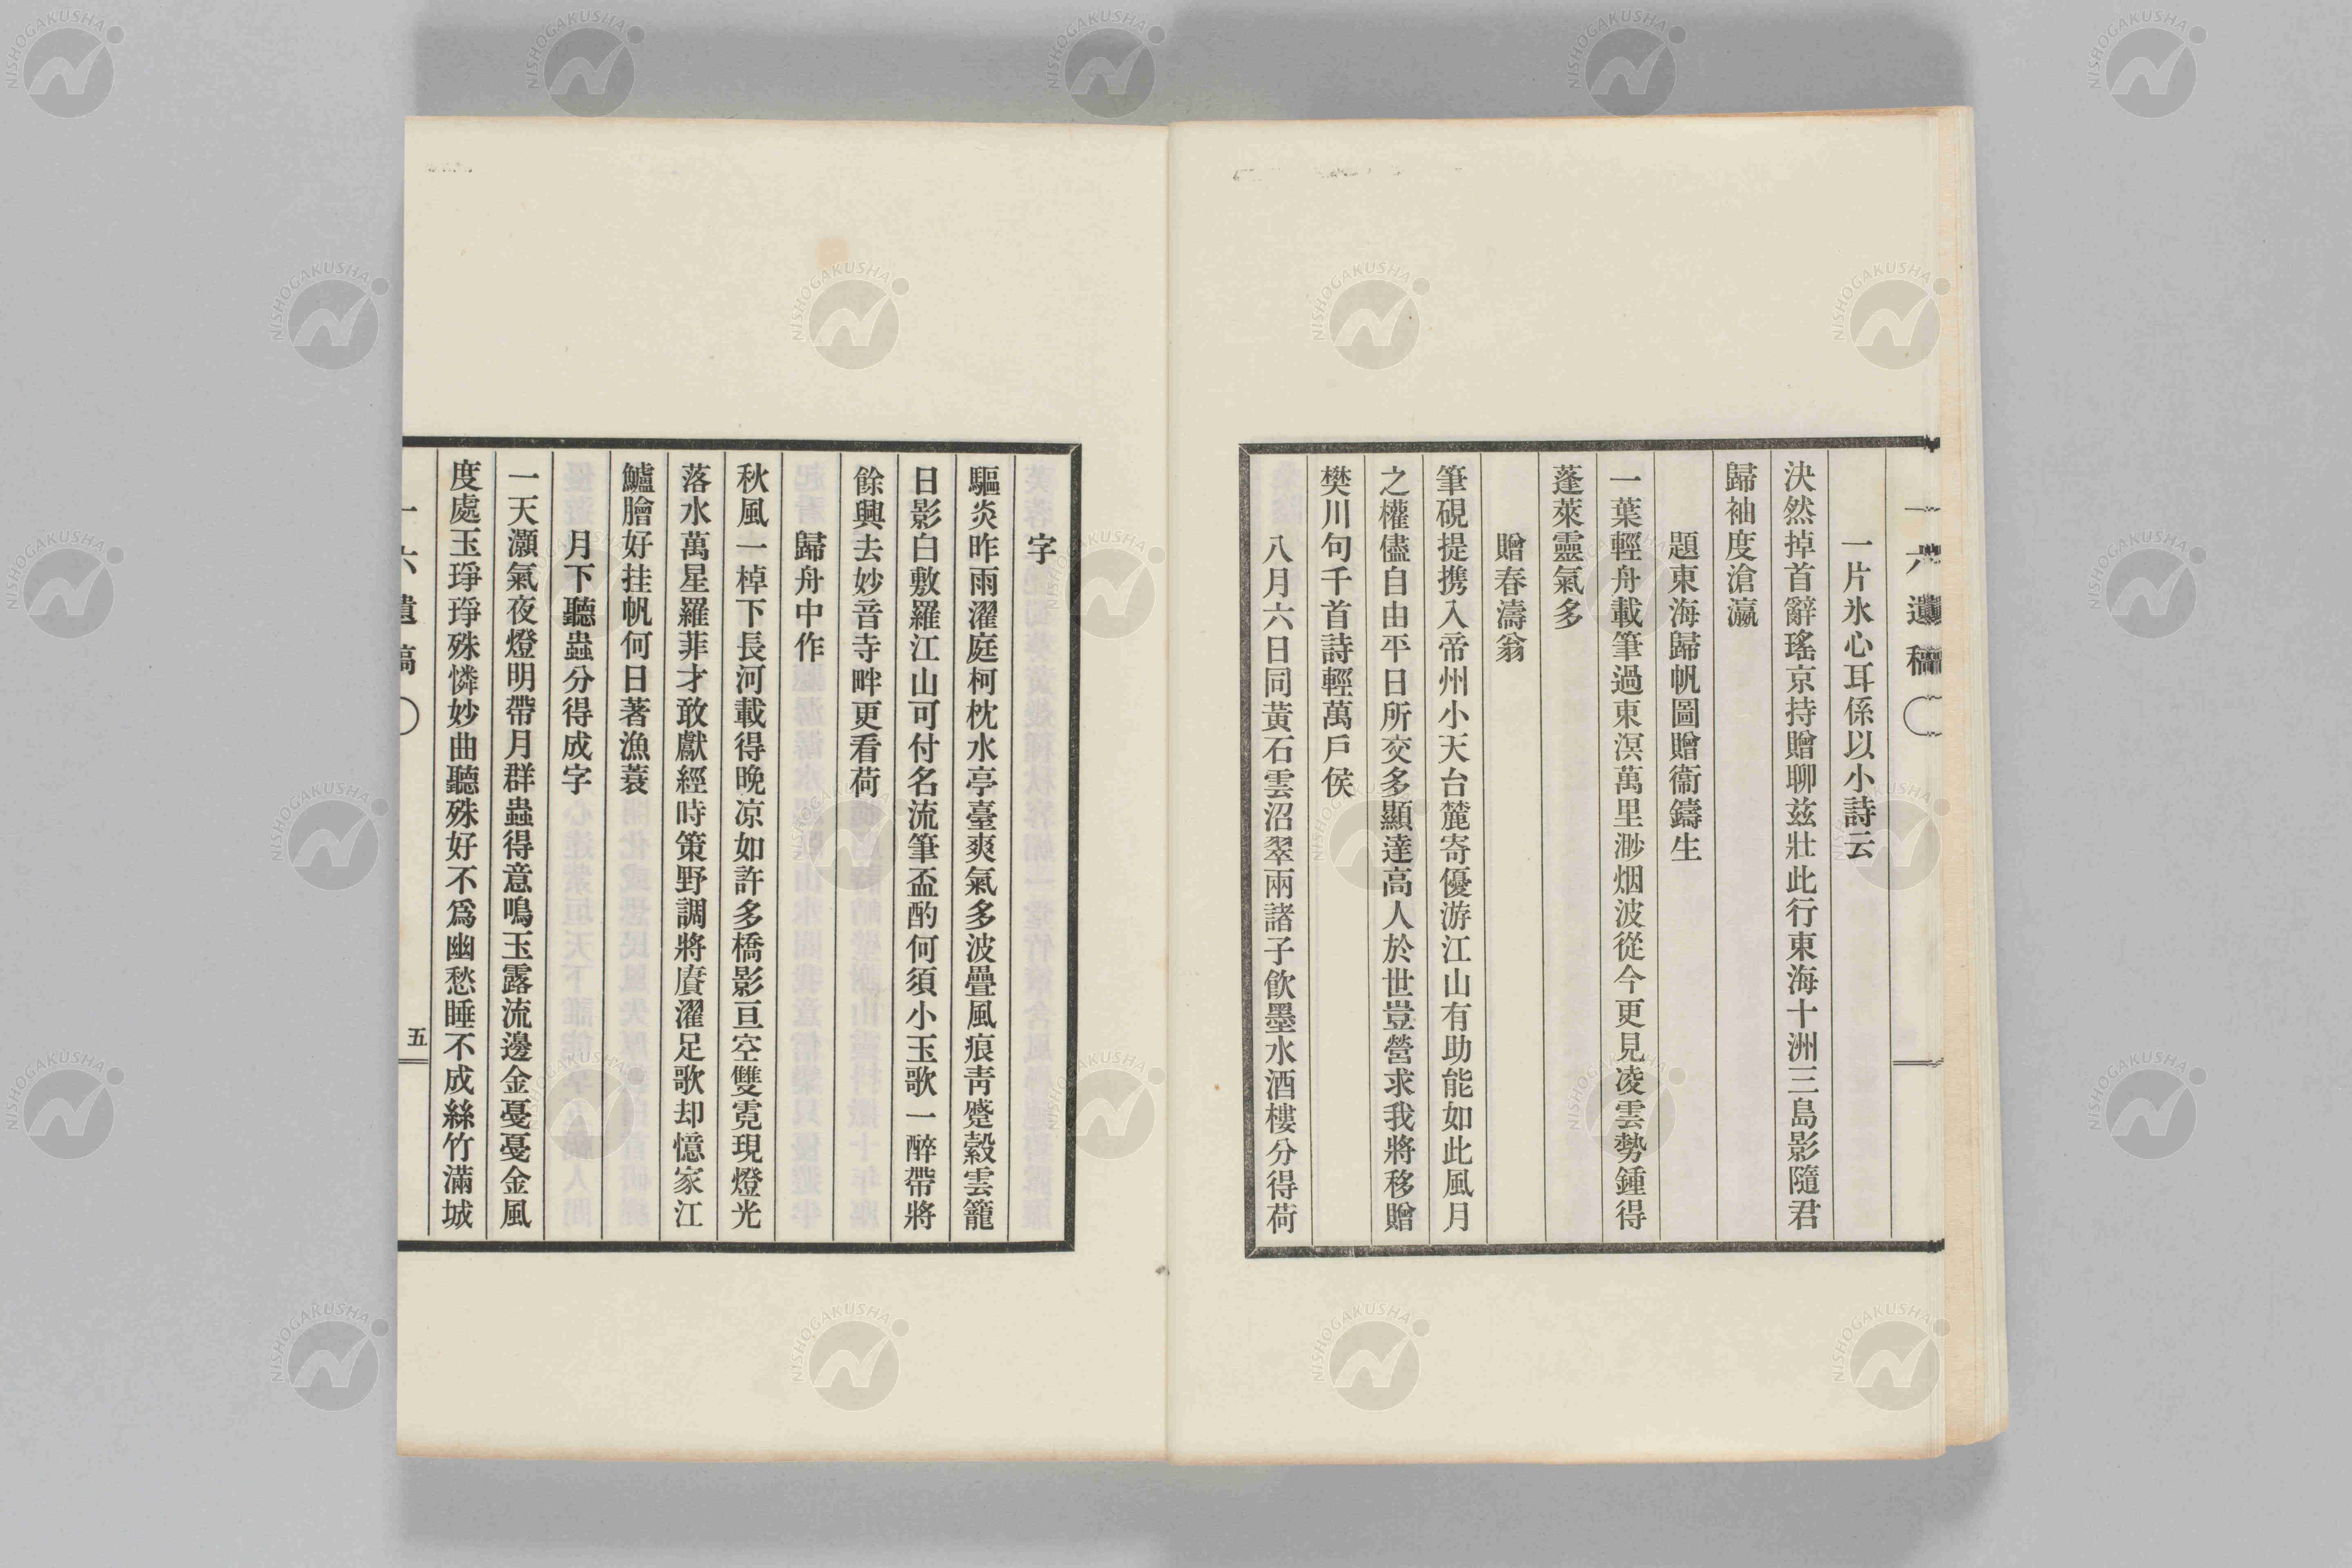 一六遺稿
一片氷心耳係以小詩云
決然掉首辭瑤京持贈聊茲壯此行東海十洲三島影隨君
歸袖度滄瀛
題東海歸帆圖贈衞鑄生
一葉輕舟載筆過東溟萬里渺烟波從今更見凌雲勢鍾得
蓬萊靈氣多
贈春濤翁
筆硯提携入帝州小天台麓寄優游江山有助能如此風月
之權儘自由平日所交多顯達高人於世豈營求我將移贈
樊川句千首詩輕萬戶侯
八月六日同黃石雲沼翠雨諸子飮墨水酒樓分得荷
字
驅炎昨雨濯庭柯枕水亭臺爽氣多波疊風痕靑蹙縠雲籠
日影白敷羅江山可付名流筆盃酌何須小玉歌一醉帶將
餘興去妙音寺畔更看荷
歸舟中作
秋風一棹下長河載得晩凉如許多橋影亘空雙霓現燈光
落水萬星羅菲才敢獻經時策野調將賡濯足歌却憶家江
鱸膾好挂帆何日著漁蓑
月下聽蟲分得成字
一天灝氣夜燈明帶月群蟲得意鳴玉露流邊金戞戞金風
度處玉琤琤殊憐妙曲聽殊好不爲幽愁睡不成絲竹滿城
一六遺稿
五
NISHOGAKUSHA